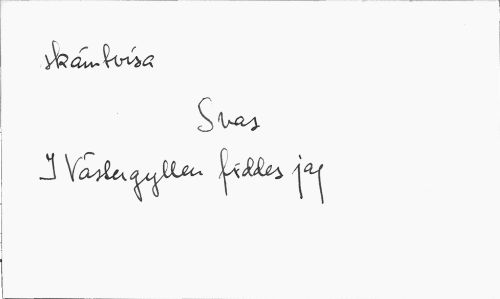 skämtvisa
Svas
I Västergyllen föddes jag